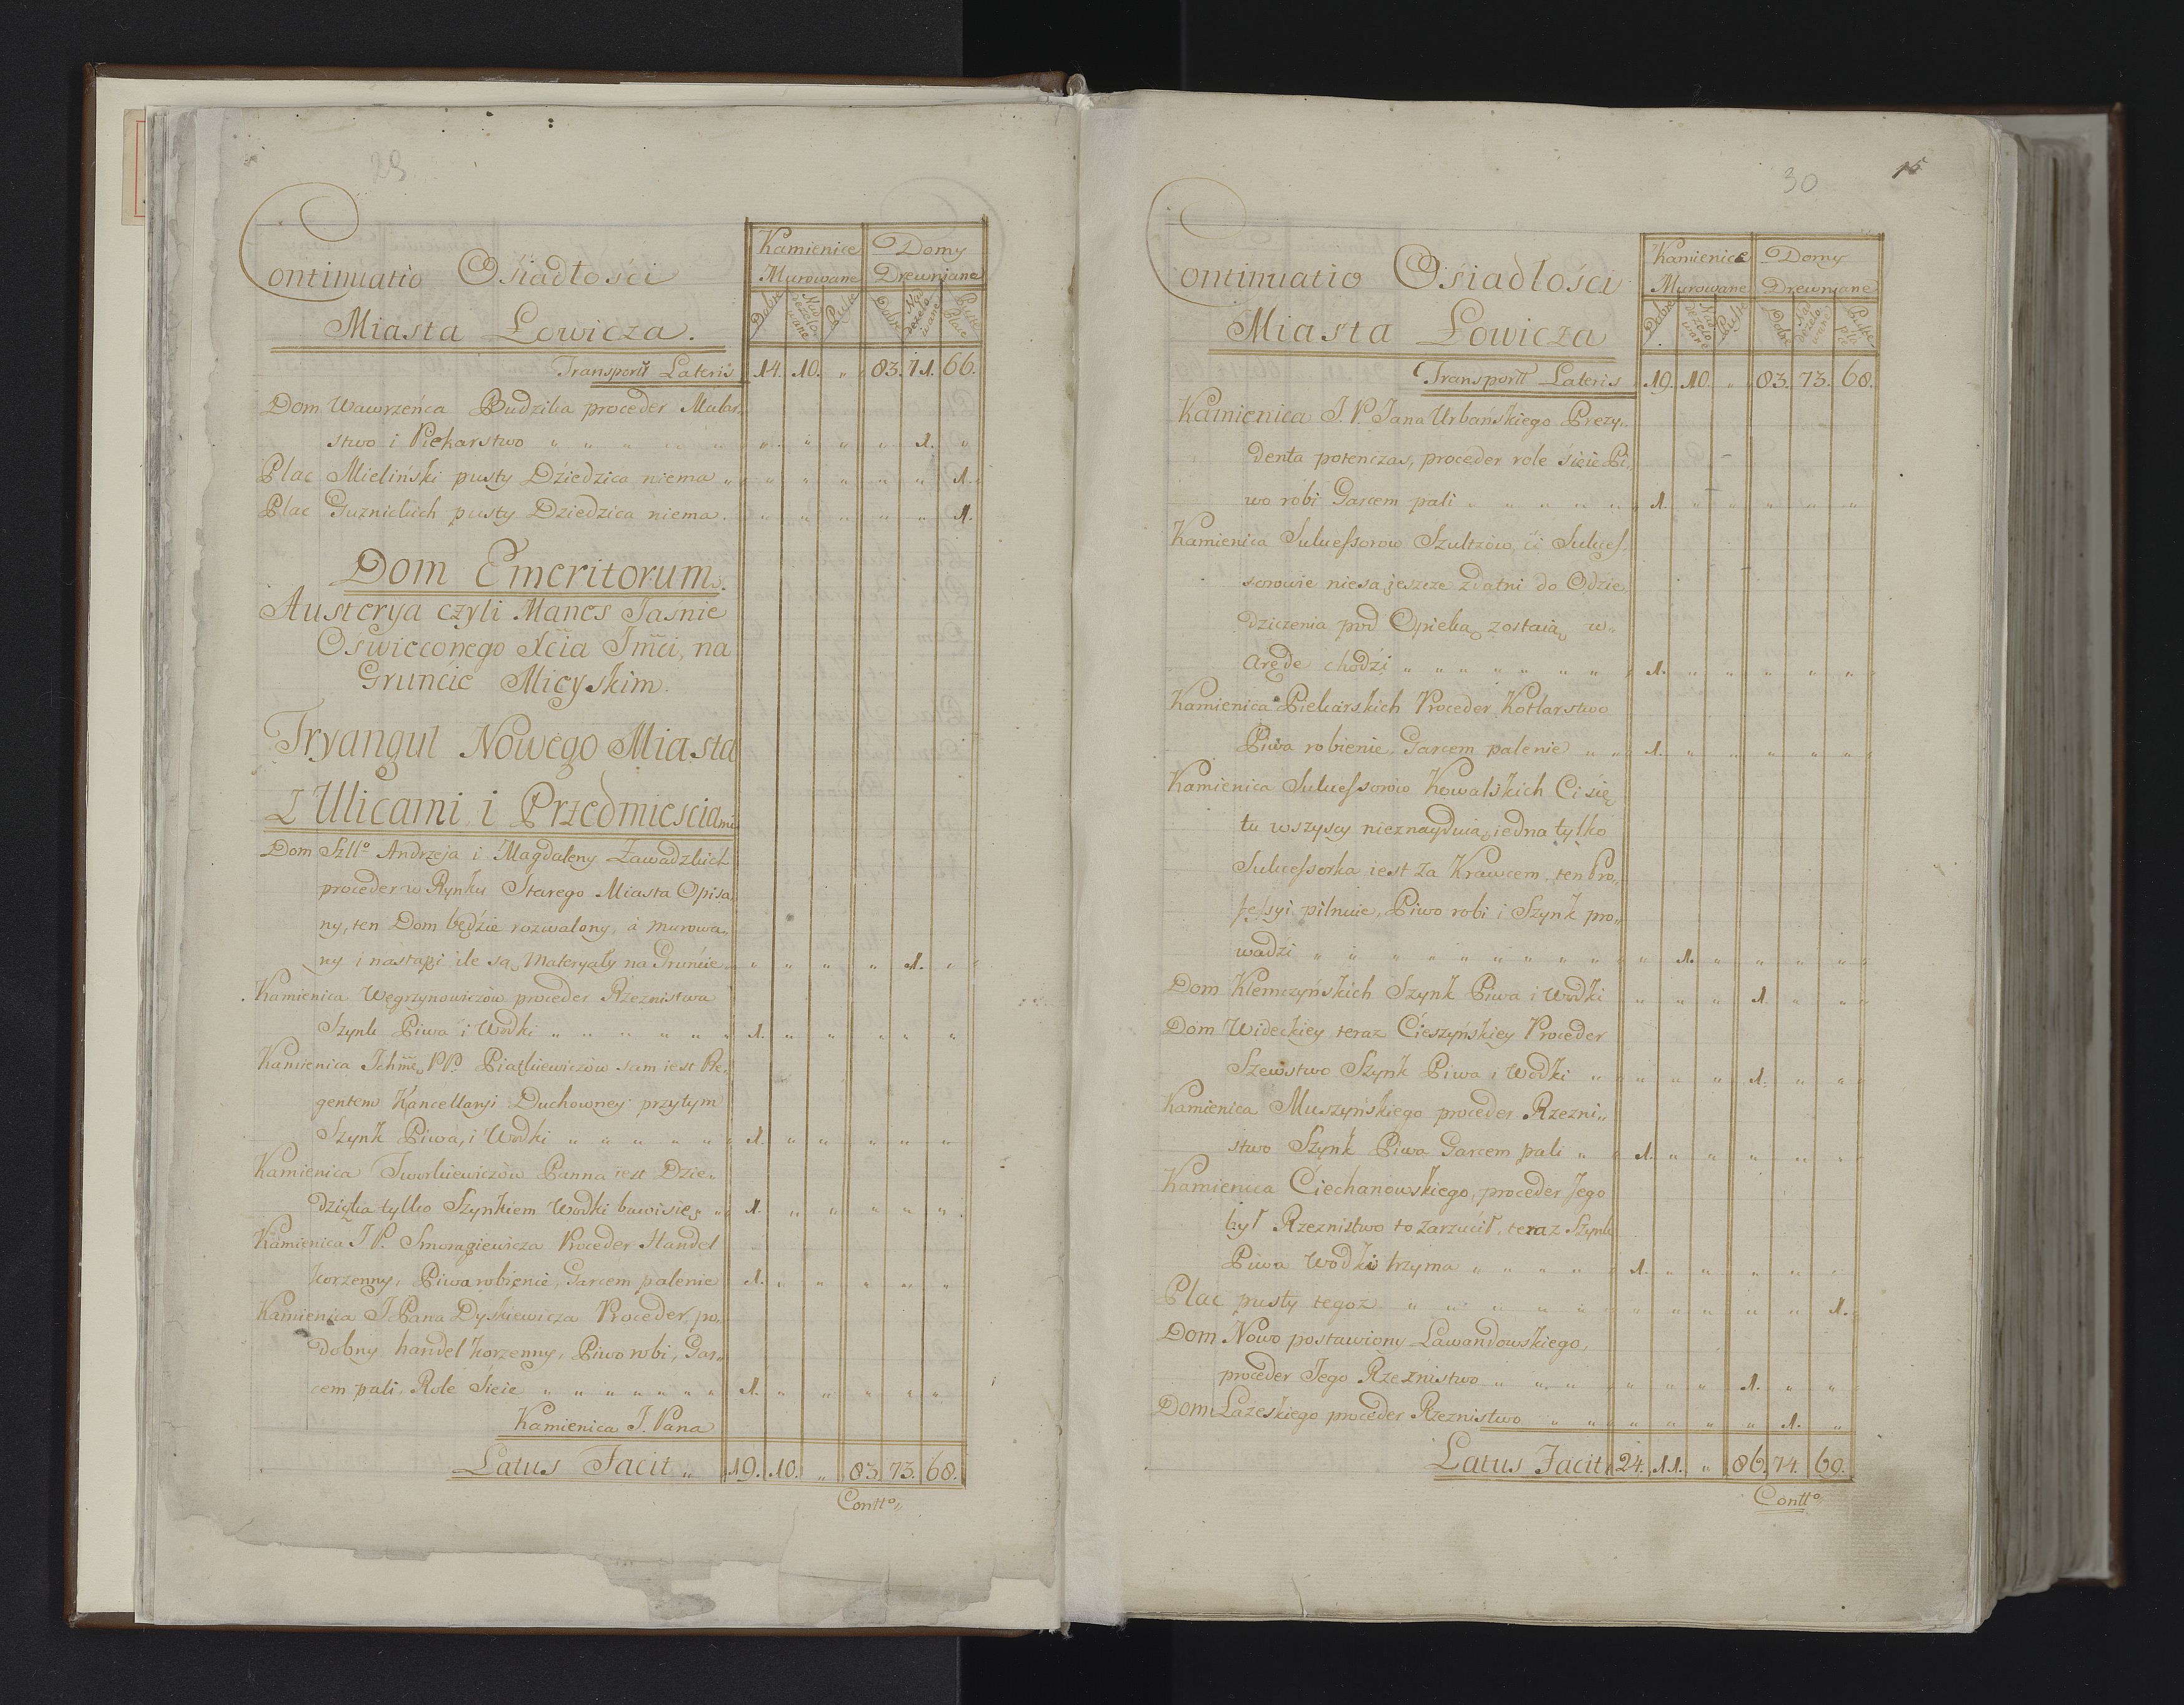 29
Continuatio Osiadłosci
Miasta Łowicza.
Kamienice Domy
Murowane Drewniane
Dobre Nad dezelo wane Puste Dobre Nad dezelo wane Puste Place
Transportt Lateris 14. 10. „ 83. 71. 66.
Dom Wawrzeńca Budzika proceder Mular„
stwo i Piekarstwo „ „ „ „ „ „ „ „ „ 1. „
Plac Mieliński pusty Dziedzica niema „ „ „ „ „ „ 1.
Plac Guznickich pusty Dziedzica niema. „ „ „ „ „ 1.
Dom Emeritorum.
Austerya czyli Manes Jaśnie
Oswieconego Xcia Jmci, na
Gruncie Mieyskim.
Tryangul Nowego Miasta
Z Ulicami i Przedmiesciami
Dom Szlło Andrzeja i Magdaleny Zawadzkich
proceder w Rynku Starego Miasta Opisa„
ny, ten Dom będzie rozwalony, á murowa„
ny i nastąpi ile są Materyały na Gruńcie „ „ „ „ 1. „
Kamienica Węgrzynowiczów proceder Rzeznistwa
Szynk Piwa i Wodki „ „ „ „ „ „ 1. „ „ „ „ „
Kamienica Ichmę PP. Piątkiewiczów sam iest Re„
gentem Kancellaryi Duchowney przytym
Szynk Piwa, i Wodki „ „ „ „ „ 1. „ „ „ „ „
Kamienica Tworkiewiczów Panna iest Dzie„
dziczka tylko Szynkiem Wodki bawi się, „ 1. „ „ „ „ „
Kamienica J P. Smoragiewicza Proceder Handel
korzenny, Piwa robienie, Garcem palenie 1. „ „ „ „ „
Kamienica J Pana Dyskiewicza Proceder po„
dobny handel korzenny, Piwo robi, Gar„
cem pali. Role sieie „ „ „ „ „ „ „ 1. „ „ „ „ „
Kamienica J. Pana
Latus Facit „ 19. 10. „ 83. 73. 68.
Contto„
30
15
Continuatio Osiadłosci
Miasta Łowicza
Kamienice Domy
Murowane Drewniane
Dobre Nad dezelo wane Puste Dobre Nad dezelo wane Puste pla ce
Transportt Lateris 19. 10. „ 83. 73. 68.
Kamienica J. P. Jana Urbańskiego Prezy„
denta potenczas, proceder role sieie Pi„
wo robi Garcem pali „ „ „ „ „ 1. „ „ „ „ „
Kamienica Sukcessorow Szultzów, ći Sukces„
sorowie niesą jeszcze zdatni do Odzie„
dziczenia pod Opieką zostaią w„
arędę chodzi „ „ „ „ „ „ „ 1. „ „ „ „ „
Kamienica Piekarskich Proceder Kotlarstwo
Piwa robienie Garcem palenie „ „ 1. „ „ „ „ „
Kamienica Sukcessorow Kowalskich Ci się
tu wszyscy nieznayduią, iedna tylko
Sukcessorka iest za Krawcem, ten Pro„
fessyi pilnuie, Piwo robi i Szynk pro„
wadzi „ „ „ „ „ „ „ „ „ „ 1. „ „ „ „
Dom Klemczyńskich Szynk Piwa i Wodki „ „ „ 1. „ „
Dom Wideckiey teraz Cieszyńskiey Proceder
Szewstwo Szynk Piwa i Wodki „ „ „ „ 1. „ „
Kamienica Muszyńskiego proceder Rzezni„
stwo Szynk Piwa Garcem pali „ 1. „ „ „ „ „
Kamienica Ciechanowskiego, proceder Jego
był Rzeznistwo to zarzucił, teraz Szynk
Piwa Wodki trzyma „ „ „ „ „ 1. „ „ „ „ „
Plac pusty tegoz „ „ „ „ „ „ „ „ „ „ 1.
Dom Nowo postawiony Lawandowskiego,
proceder Jego Rzeznistwo „ „ „ „ „ „ 1. „ „
Dom Lazeskiego proceder Rzeznistwo „ „ „ „ „ „ 1. „
Latus Facit 24. 11. „ 86. 74. 69.
Contto„